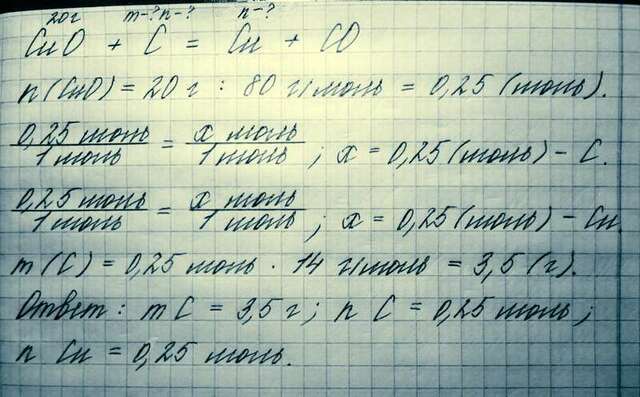 20г m-? n-? n-?
CuO + C = Cu + CO
n(CuO) = 20 г : 80 г/моль = 0,25 (моль).
0,25 моль/1 моль = x моль/1 моль ; x = 0,25 (моль) - C.
0,25 моль/1 моль = x моль/1 моль ; x = 0,25 (моль) - Cu.
m(C) = 0,25 моль · 14 г/моль = 3,5 (г).
Ответ: m C = 3,5 г; n C = 0,25 моль;
n Cu = 0,25 моль.